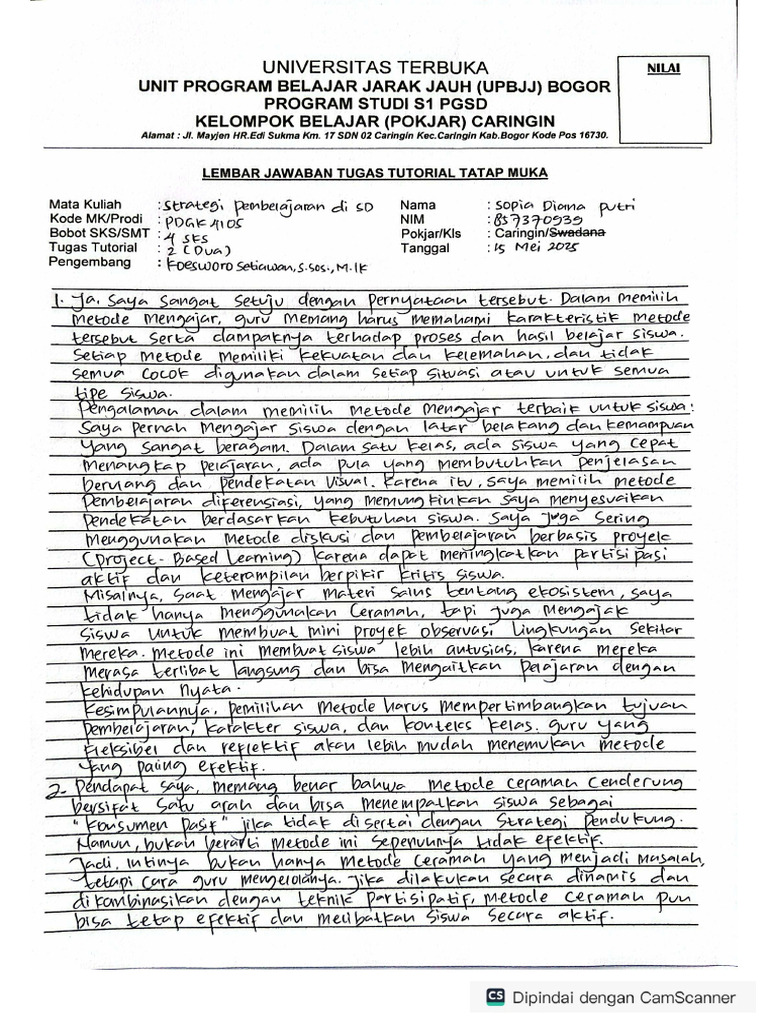 UNIVERSITAS TERBUKA
UNIT PROGRAM BELAJAR JARAK JAUH (UPBJJ) BOGOR
PROGRAM STUDI S1 PGSD
KELOMPOK BELAJAR (POKJAR) CARINGIN
Alamat : Jl. Mayjen HR.Edi Sukma Km. 17 SDN 02 Caringin Kec.Caringin Kab.Bogor Kode Pos 16730.
NILAI
LEMBAR JAWABAN TUGAS TUTORIAL TATAP MUKA
Mata Kuliah : Strategi Pembelajaran di SD
Kode MK/Prodi : PDGK 4105
Bobot SKS/SMT : 4 SKS
Tugas Tutorial : 2 (Dua)
Pengembang : Koesworo Setiawan, S.sos., M.Ik
Nama : Sopia Diana Putri
NIM : 857370939
Pokjar/Kls : Caringin/Swadana
Tanggal : 15 Mei 2025
1. Ja, Saya Sangat Setuju dengan Pernyataan tersebut. Dalam memilih
metode mengajar, guru memang harus memahami karakteristik metode
tersebut serta dampaknya terhadap proses dan hasil belajar siswa.
Setiap metode memiliki kekuatan dan kelemahan, dan tidak
semua cocok digunakan dalam setiap situasi atau untuk semua
tipe siswa.
Pengalaman dalam memilih metode mengajar terbaik untuk siswa:
Saya Pernah Mengajar siswa dengan latar belakang dan kemampuan
yang sangat beragam. Dalam satu kelas, ada siswa yang cepat
menangkap pelajaran, ada pula yang membutuhkan penjelasan
beruang dan pendekatan visual. Karena itu, saya memilih metode
Pembelajaran diferensiasi, yang memungkinkan saya menyesuaikan
pendekatan berdasarkan kebutuhan siswa. Saya juga Sering
menggunakan metode diskusi dan pembelajaran berbasis proyek
(Project-Based Learning) karena dapat meningkatkan partisipasi
aktif dan keterampilan berpikir kritis siswa.
Misalnya, saat mengajar materi sains tentang ekosistem, saya
tidak hanya menggunakan Ceramah, tapi juga mengajak
siswa untuk membuat mini proyek observasi lingkungan sekitar
mereka. Metode ini membuat siswa lebih antusias, karena mereka
merasa terlibat langsung dan bisa mengaitkan pelajaran dengan
kehidupan nyata.
Kesimpulannya, pemilihan metode harus mempertimbangkan tujuan
pembelajaran, karakter siswa, dan konteks kelas. guru yang
fleksibel dan reflektif akan lebih mudah menemukan metode
yang paling efektif.
2. Pendapat saya, memang benar bahwa metode ceramah Cenderung
bersifat satu arah dan bisa menempatkan siswa sebagai
"Konsumen Pasif" jika tidak disertai dengan Strategi Pendukung.
Namun, bukan berarti metode ini sepenuhnya tidak efektif.
Jadi, intinya bukan hanya metode ceramah yang menjadi masalah,
tetapi cara guru mengelolanya. Jika dilakukan secara dinamis dan
dikombinasikan dengan teknik partisipatif, metode ceramah pun
bisa tetap efektif dan melibatkan siswa secara aktif.
CS Dipindai dengan CamScanner